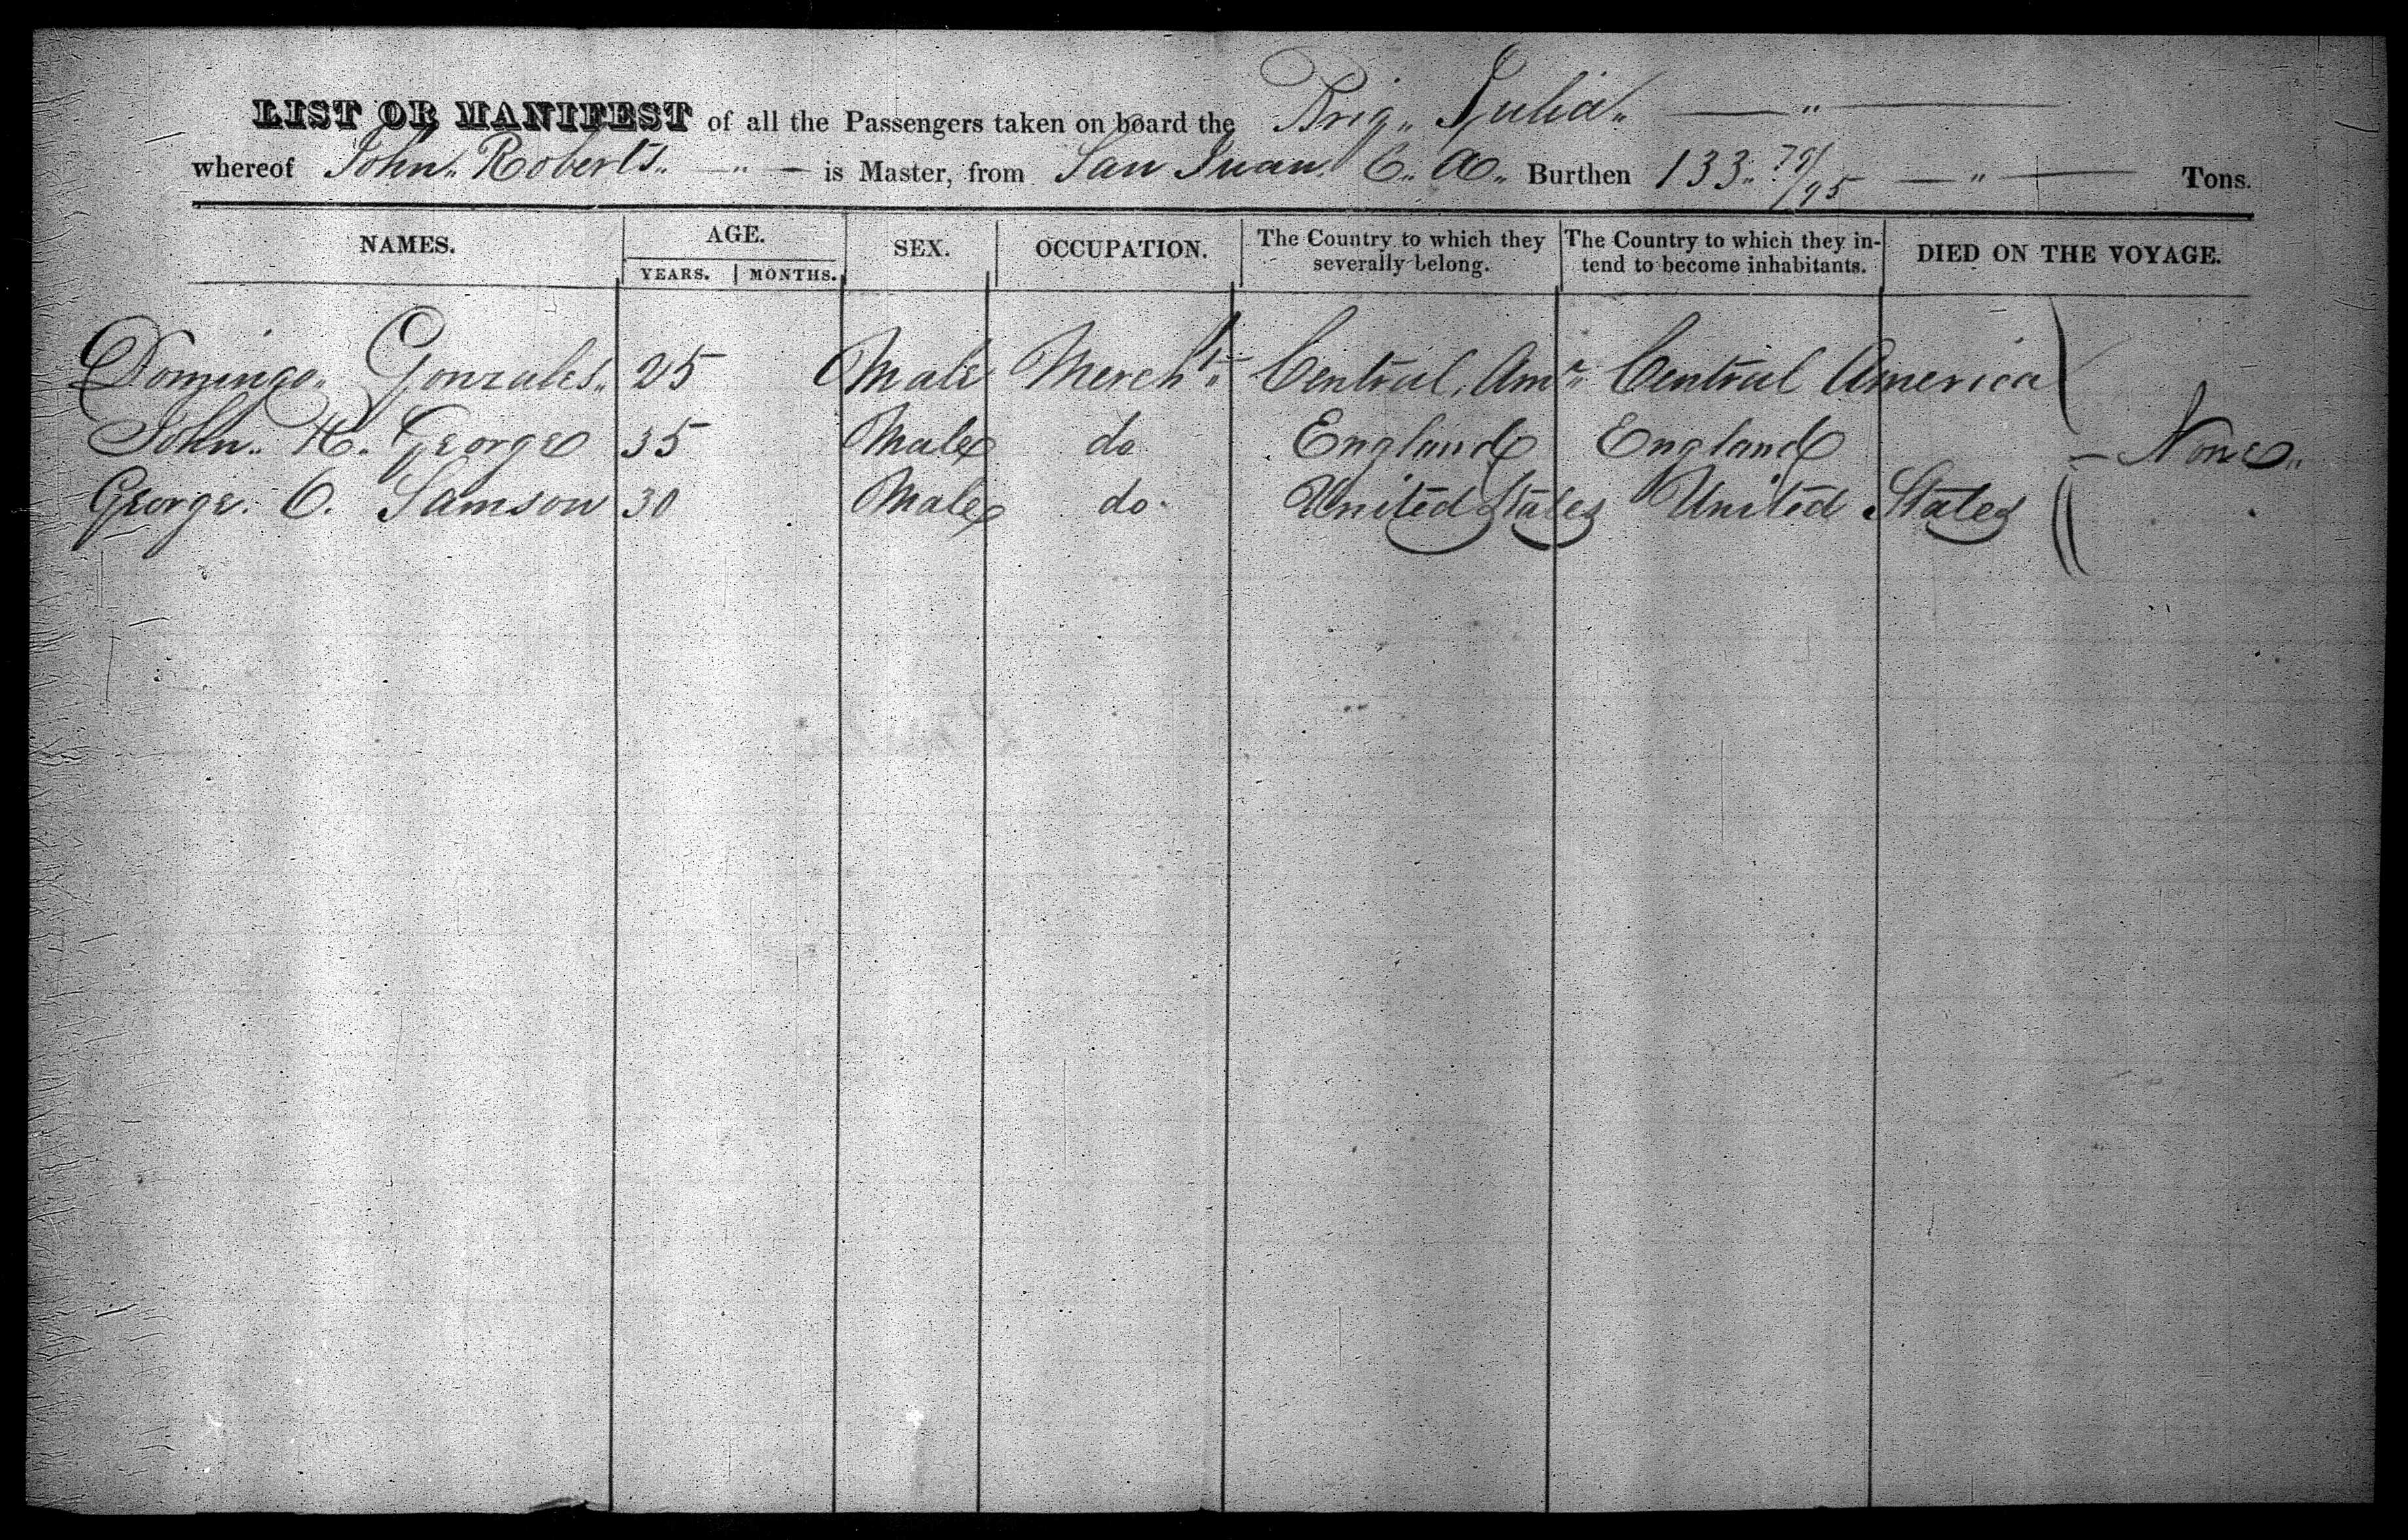 LIST OR MANIFEST of all the Passengers taken on board the Brig Julia
whereof John Roberts is Master, from San Juan C. A. Burthen 133 /95 Tons.
NAMES. AGE. SEX. OCCUPATION. The Country to which they severally belong. The Country to which they intend to become inhabitants. DIED ON THE VOYAGE.
YEARS. MONTHS.
Domingo Gonzales 25 Male Mercht Central Amr Central America
John H. George 35 Male do England England None
George C. Samson 30 Male do United States United States